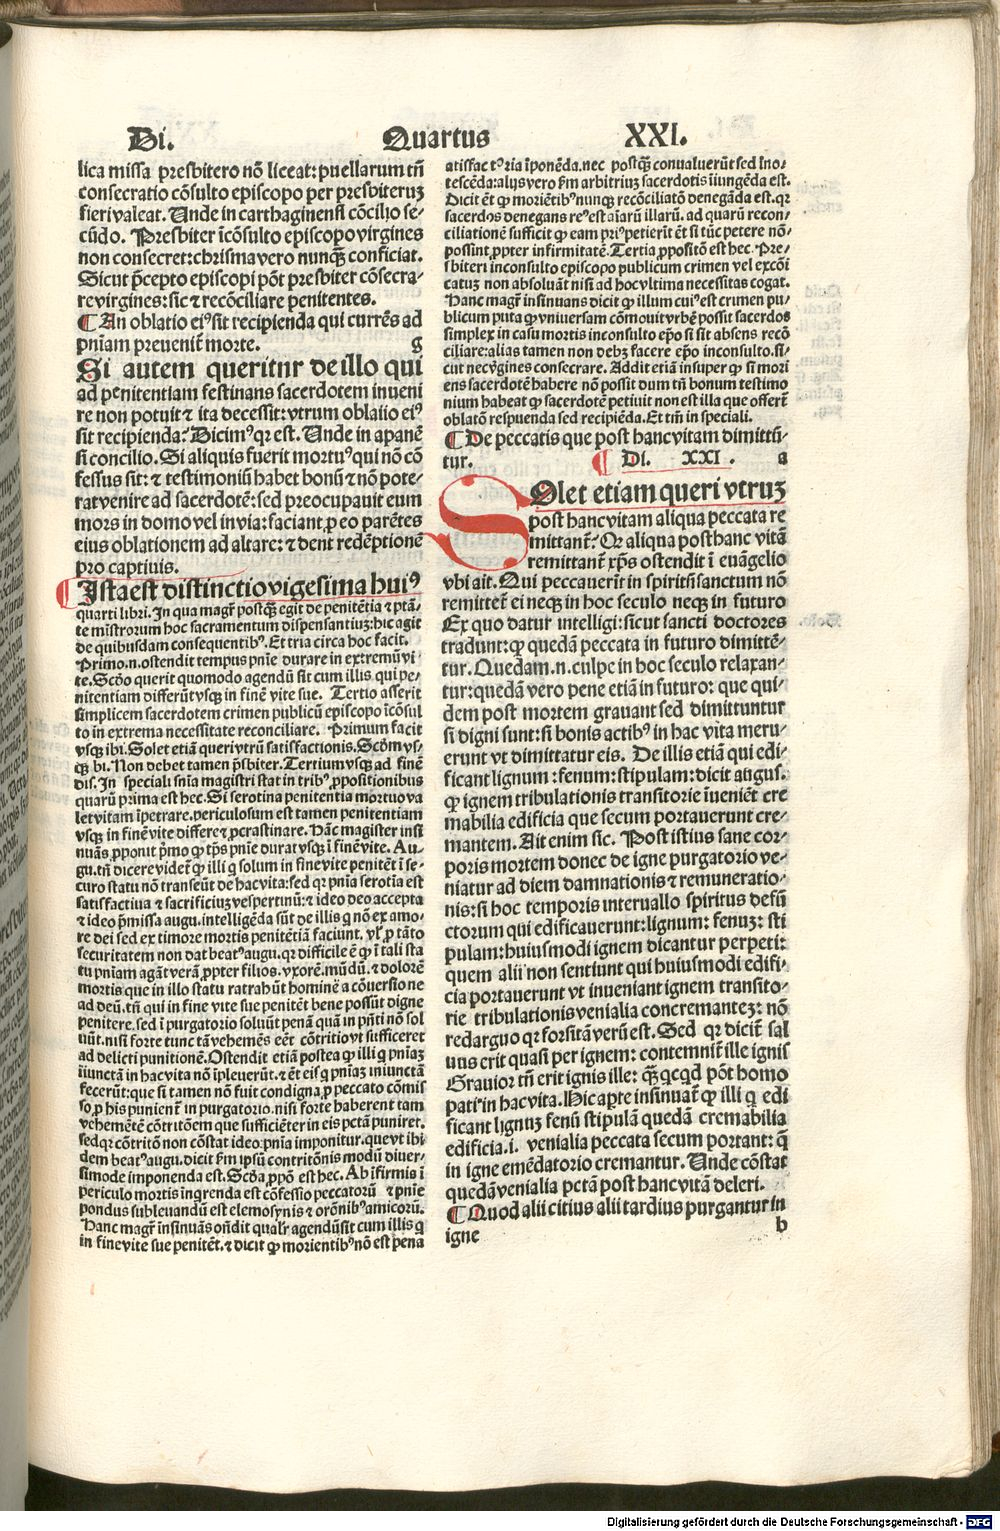 Di. Quartus XXI.
lica missa presbitero nō liceat: puellarum tñ
consecratio cōsulto episcopo per presbiteruꝫ
fieri valeat. Unde in carthaginensi cōcilio se⸗
cūdo. Presbiter īcōsulto episcopo virgines
non consecret: chrisma vero nunqꝫ conficiat.
Sicut p̄cepto episcopi pōt presbiter cōsecra⸗
re virgines: sic ⁊ recōciliare penitentes.
¶ An oblatio eiꝰ sit recipienda qui currēs ad
pniam preuenit̄ morte. g
Si autem queritnr de illo qui
ad penitentiam festinans sacerdotem inueni
re non potuit ⁊ ita decessit: vtrum oblatio eiꝰ
sit recipienda? Dicimꝰ qꝛ est. Unde in apanē
si concilio. Si aliquis fuerit mortuꝰ qui nō cō
fessus sit: ⁊ testimoniū habet bonū ⁊ non pote⸗
rat venire ad sacerdotē: sed preocupauit eum
mors in domo vel in via: faciant ꝓ eo parētes
eius oblationem ad altare: ⁊ dent redēptionē
pro captiuis.
¶ Ista est distinctio vigesima huiꝰ
quarti libri. In qua magr̄ postqꝫ egit de penitētia ⁊ ptāte
te mīstrorum hoc sacramentum dispensantiuꝫ: hic agit
de quibusdam consequentibꝰ. Et tria circa hoc facit.
Primo .n. ostendit tempus pnīe durare in extremū vi⸗
te. Scdo querit quomodo agendū sit cum illis qui pe⸗
nitentiam differūt vsqꝫ in finē vite sue. Tertio asserit
simplicem sacerdotem crimen publicū episcopo īcōsul
to in extrema necessitate reconciliare. Primum facit
vsqꝫ ibi. Solet etiā queri vtrū satisfactionis. Scdm vs⸗
qꝫ bi. Non debet tamen p̄sbiter. Tertium vsqꝫ ad finē
dis. In speciali snīa magistri stat in tribꝰ ꝓpositionibus
quarū prima est hec. Si serotina penitentia mortuo va
let vitam īpetrare. periculosum est tamen penitentiam
vsqꝫ in finē vite differe ⁊ ꝓcrastinare. Hāc magister insi
nuās ꝓponit p̄mo ꝙ tp̄s pnīe durat vsqꝫ ī finē vite. Au⸗
gu. tñ dicere videt̄ ꝙ illi q̄ solum in fine vite penitēt ī se⸗
curo statu nō transeūt de hac vita: sed qꝛ pnīa serotīa est
satisfactiua ⁊ sacrificiuꝫ vespertinū: ⁊ ideo deo accepta
⁊ ideo p̄missa augu. intelligēda sūt de illis q̄ nō ex amo⸗
re dei sed ex timore mortis penitētiā faciunt. vl̓ ꝓ tāto
securitatem non dat beatꝰ augu. qꝛ difficile ē ꝙ ī tali sta
tu pniam agāt verā ꝓpter filios. vxorē. mūdū. ⁊ dolorē
mortis que in illo statu ratrahūt hominē a cōuersione
ad deū. tñ qui in fine vite sue penitēt bene possūt digne
penitere. sed ī purgatorio soluūt penā quā in pñti nō sol
uūt. nisi forte tunc tā vehemēs eēt cōtritio vt sufficeret
ad delicti punitionē. Ostendit etiā postea ꝙ illi q̄ pniaꝫ
iiunctā in hac vita nō īpleuerūt. ⁊ ēt eis q̄ pniaꝫ iniunctā
fecerūt: que si tamen nō fuit condigna ꝓ peccato cōmis
so. ꝓ his punient̄ in purgatorio. nisi forte haberent tam
vehemētē cōtritōem que sufficiēter in eis pctā puniret.
sed qꝛ cōtritō non cōstat ideo: pnīa imponitur. que vt ibi
dem beatꝰ augu. dicit sm ipsū contritōnis modū diuer⸗
simode imponenda est. Scda ꝓpō est hec. Ab īfirmis ī
periculo mortis ingrenda est cōfessio peccatorū ⁊ pnīe
pondus subleuandū est elemosynis ⁊ orōnibꝰ amicorū.
Hanc magr̄ insinuās oñdit qualr̓ agendū sit cum illis q̄
in fine vite sue penitēt. ⁊ dicit ꝙ morientibꝰ nō est pena
atisfactoria īponēda. nec postqꝫ conualuerūt sed īno⸗
tescēda: alijs vero sm arbitriuꝫ sacerdotis iiungēda est.
Dicit ēt ꝙ moriētibꝰ nunqꝫ recōciliatō denegāda est. qꝛ
sacerdos denegans reꝰ est aīarū illarū. ad quarū recon⸗
ciliatione sufficit ꝙ eam priꝰ petierūt ēt si tūc petere nō⸗
possint ꝓpter infirmitatē. Tertia ꝓpositō est hec. Pre⸗
sbiteri inconsulto episcopo publicum crimen vel excōi
catuꝫ non absoluāt nisi ad hoc vltima necessitas cogat.
Hanc magr̄ insinuans dicit ꝙ illum cuiꝰ est crimen pu⸗
blicum puta ꝙ vniuersam cōmouit vrbē possit sacerdos
simplex in casu mortis inconsulto epō si sit absens recō
ciliare: alias tamen non debꝫ facere epō inconsulto. si⸗
cut nec v̓gines consecrare. Addit etiā insuper ꝙ si mori
ens sacerdotē habere nō possit dum tñ bonum testimo
nium habeat ꝙ sacerdotē petiuit non est illa que offert̄
oblatō respuenda sed recipiēda. Et tm̄ in speciali.
¶ De peccatis que post hanc vitam dimittū⸗
tur. ¶ Di. XXI. a
Solet etiam queri vtruꝫ
post hanc vitam aliqua peccata re
mittant̄? Qꝛ aliqua post hanc vitā
remittant̄ xp̄s ostendit ī euāgelio
vbi ait. Qui peccauerit in spiritū sanctum nō
remittet̄ ei neqꝫ in hoc seculo neqꝫ in futuro
Ex quo datur intelligi: sicut sancti doctores
tradunt: ꝙ quedā peccata in futuro dimittē⸗
tur. Quedam .n. culpe in hoc seculo relaxan⸗
tur: quedā vero pene etiā in futuro: que qui⸗
dem post mortem grauant sed dimittuntur
si digni sunt: si bonis actibꝰ in hac vita meru⸗
erunt vt dimittatur eis. De illis etiā qui edi⸗
ficant lignum: fenum: stipulam: dicit augus.
ꝙ ignem tribulationis transitorie īueniēt cre
mabilia edificia que secum portauerunt cre⸗
mantem. Ait enim sic. Post istius sane cor⸗
poris mortem donec de igne purgatorio ve⸗
niatur ad diem damnationis ⁊ remuneratio⸗
nis: si hoc temporis interuallo spiritus defū
ctorum qui edificauerunt: lignum: fenuꝫ: sti
pulam: huiusmodi ignem dicantur perpeti:
quem alii non sentiunt qui huiusmodi edifi⸗
cia portauerunt vt inueniant ignem transito⸗
rie tribulationis venialia concremantez: nō
redarguo qꝛ forsitā verū est. Sed qꝛ dicit̄ sal
uus erit quasi per ignem: contemnit̄ ille ignis
Grauior tñ erit ignis ille: qꝫ qcqd pōt homo
pati in hac vita. Hic aꝑte insinuat̄ ꝙ illi q̄ edi
ficant lignuꝫ fenū stipulā quedā cremabilia
edificia .i. venialia peccata secum portant: q̄
in igne emēdatorio cremantur. Unde cōstat
quedā venialia pctā post hanc vitā deleri.
¶ Quod alii citius alii tardius purgantur in
igne b
Digitalisierung gefördert durch die Deutsche Forschungsgemeinschaft - DFG